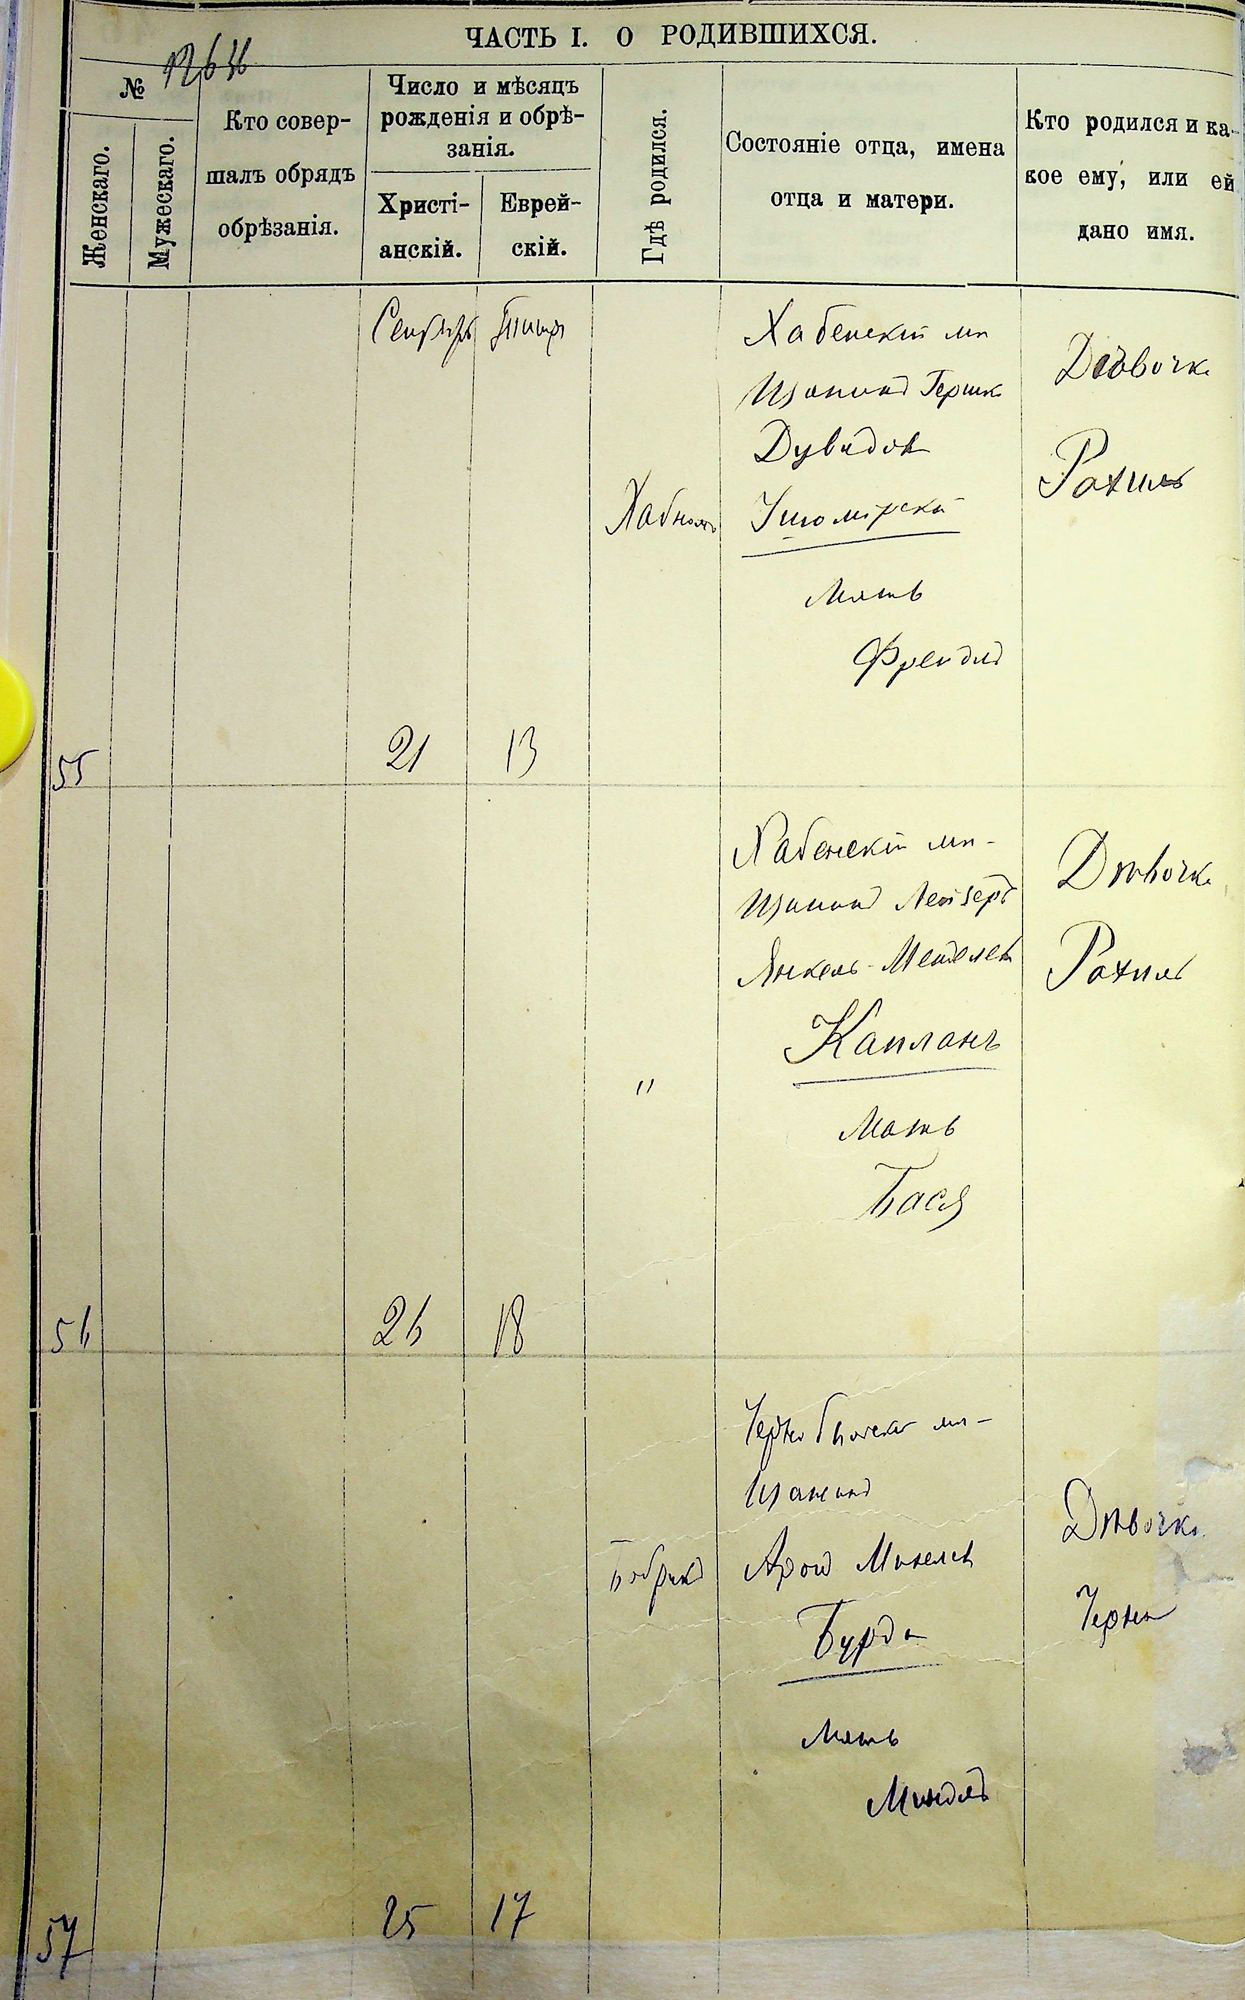 ЧАСТЬ I. О РОДИВШИХСЯ.
№
Женскаго.
Мужескаго.
Кто совер-
шалъ обрядъ
обрѣзанія.
Число и мѣсяцъ
рожденія и обрѣ-
занія.
Христі-
анскій.
Еврей-
скій.
Гдѣ родился.
Состояніе отца, имена
отца и матери.
Кто родился и ка-
кое ему, или ей
дано имя.
55
Сентябрь
21
Тишри
13
Хабное
Хабенскій мѣ
щанинъ Гершко
Дувидов
Ушомирскій
Мать
Фрейдля
Дѣвочка
Рахиль
56
26
18
"
Хабенскій мѣ-
щанинъ Лейзеръ
Янкель-Менделев
Капланъ
Мать
Бася
Дѣвочка
Рахиль
57
25
17
Чернобыльскій мѣ-
щанинъ
Арон
Бурда
Мать
Миндля
Дѣвочка
Черна